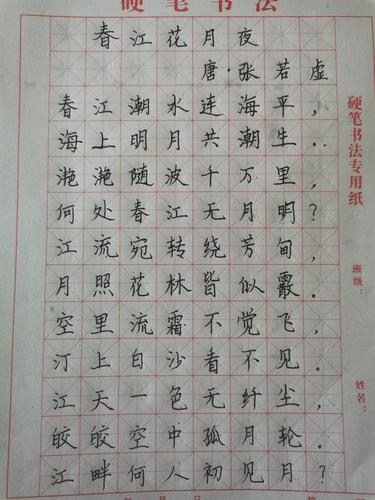 硬笔书法
春江花月夜
唐·张若虚
春江潮水连海平，
海上明月共潮生..
滟滟随波千万里，
何处春江无月明？
江流宛转绕芳甸，
月照花林皆似霰.
空里流霜不觉飞，
汀上白沙看不见.
江天一色无纤尘，
皎皎空中孤月轮.
江畔何人初见月？
硬笔书法专用纸
班级：
姓名：
年 月 日